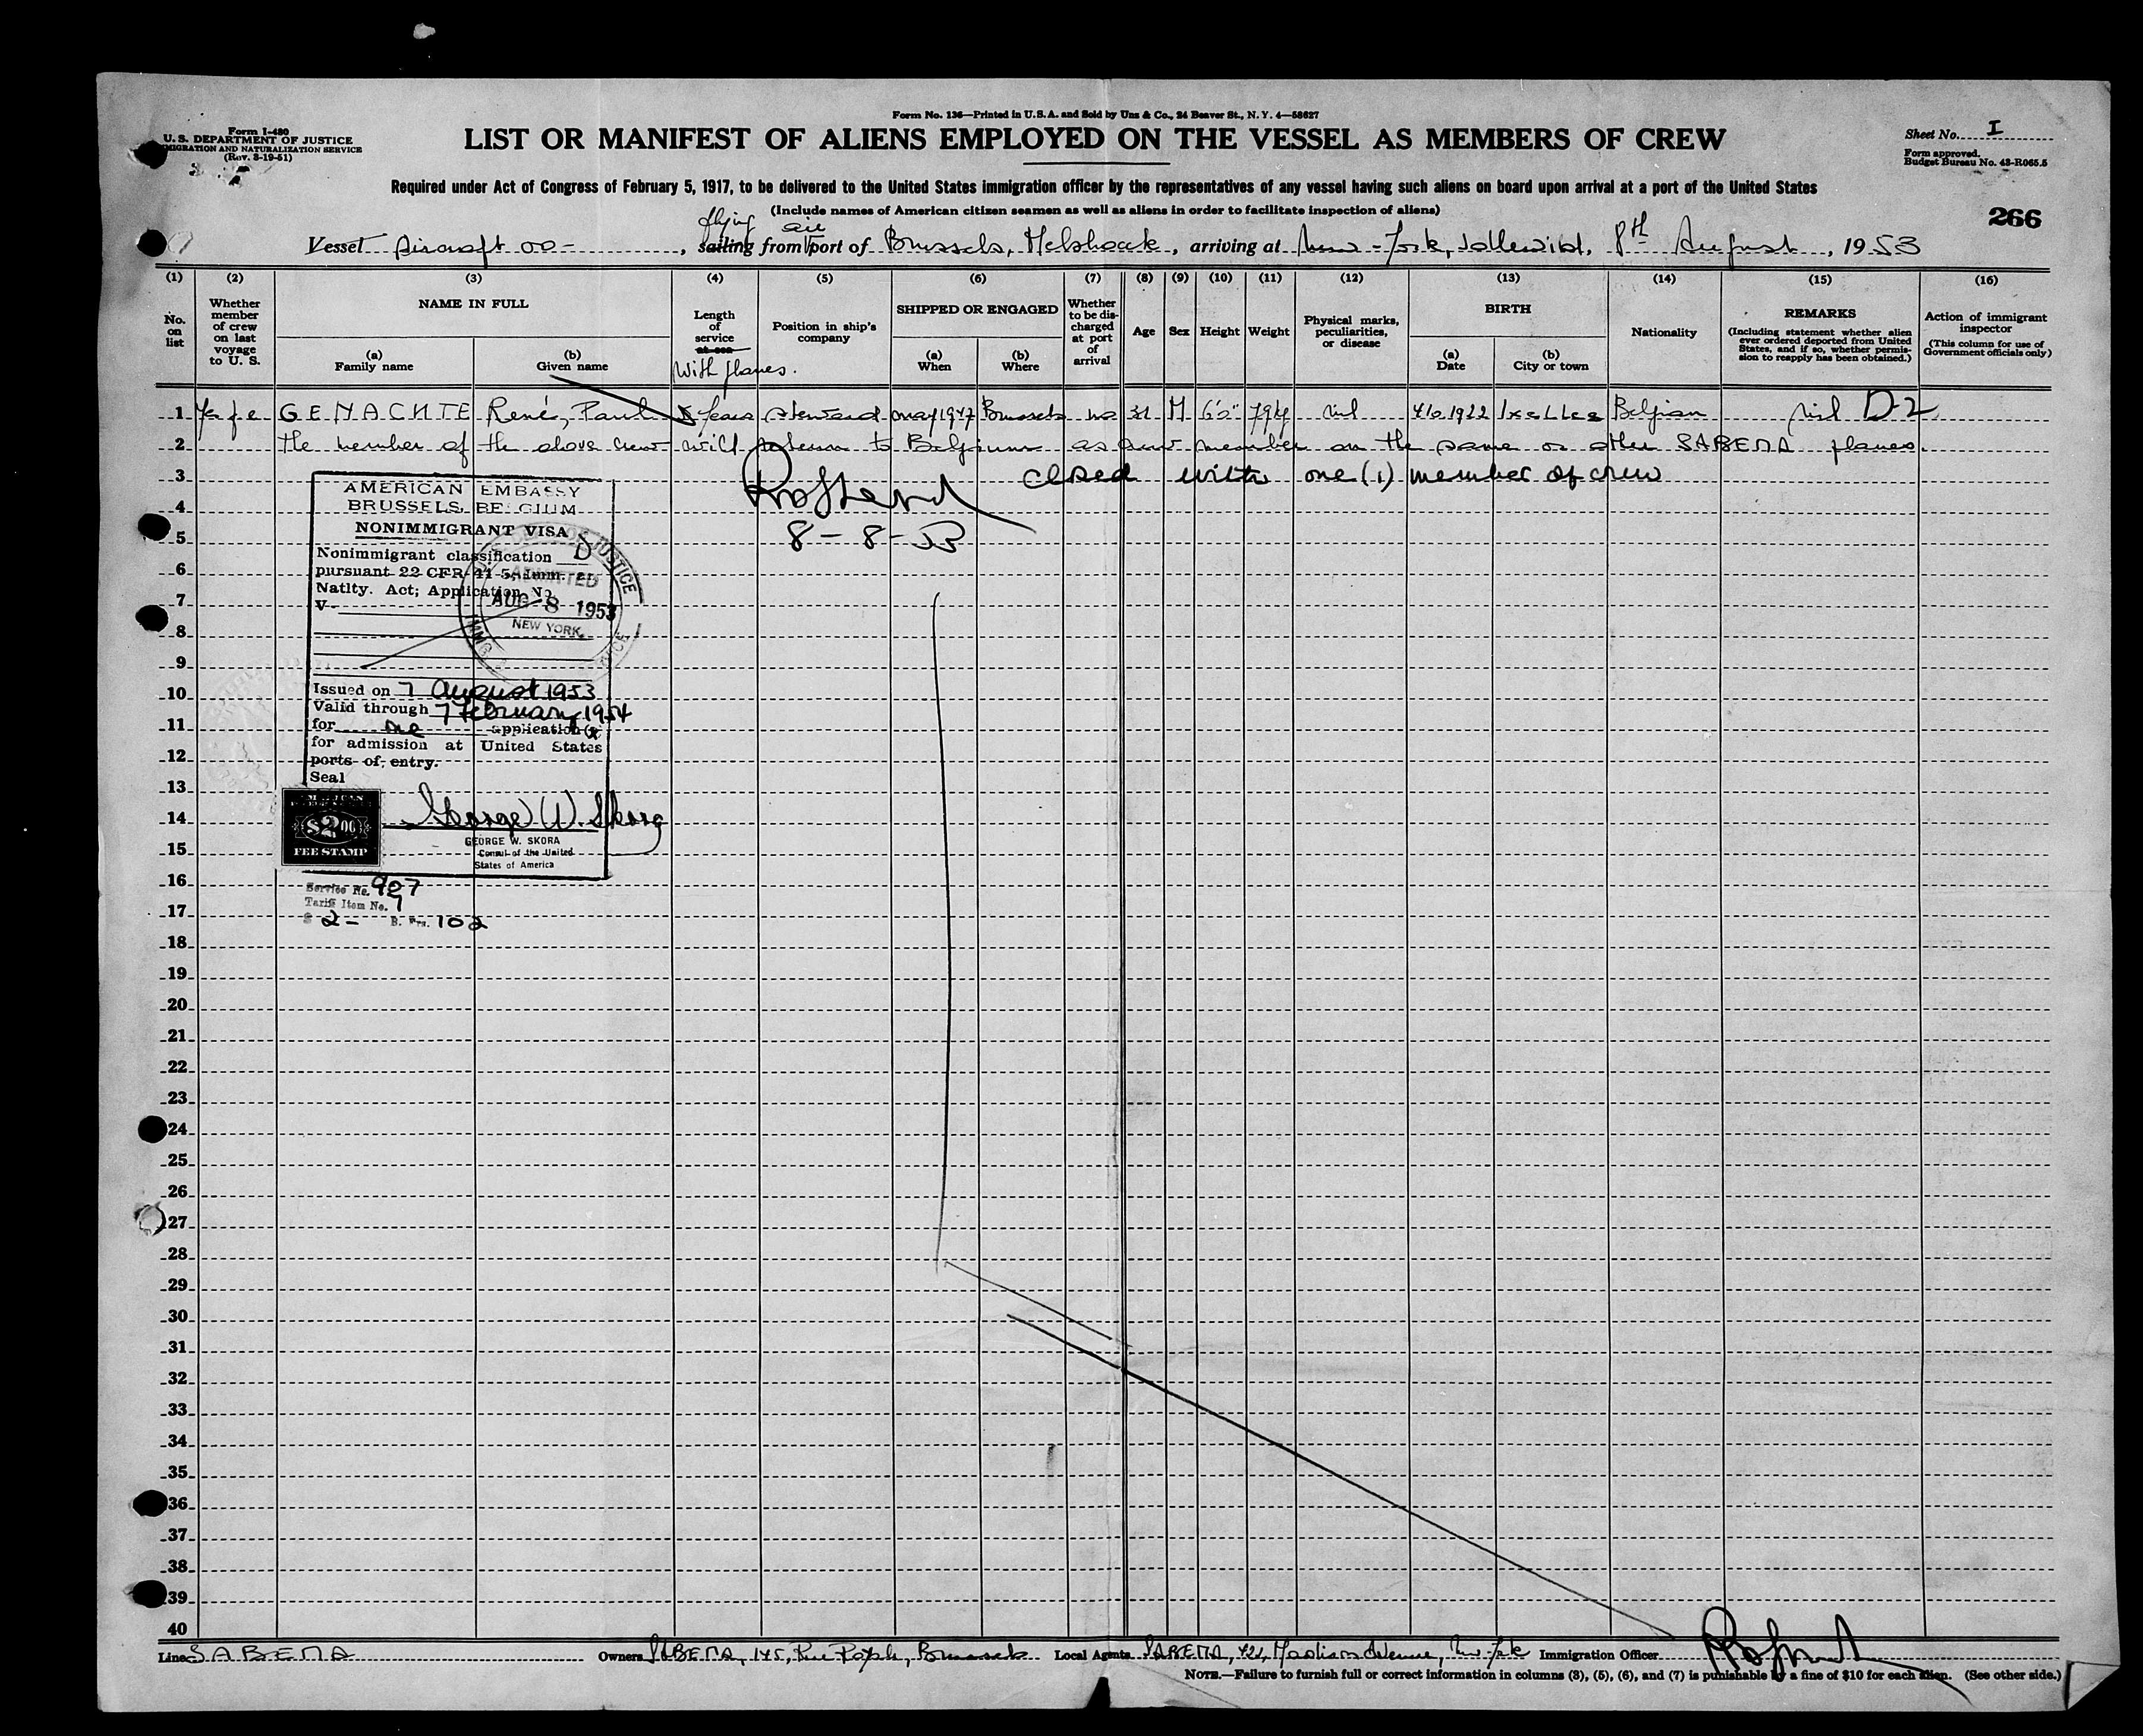 Form No. 136—Printed in U.S.A. and Sold by Unz & Co., 24 Beaver St., N. Y. 4—58627
Form I-480
U. S. DEPARTMENT OF JUSTICE
IMMIGRATION AND NATURALIZATION SERVICE
(Rev. 3-19-51)
LIST OR MANIFEST OF ALIENS EMPLOYED ON THE VESSEL AS MEMBERS OF CREW
Sheet No. I
Form approved.
Budget Bureau No. 43-R065.5
Required under Act of Congress of February 5, 1917, to be delivered to the United States immigration officer by the representatives of any vessel having such aliens on board upon arrival at a port of the United States
(Include names of American citizen seamen as well as aliens in order to facilitate inspection of aliens)
266
flying air
Vessel Aircraft OO-, sailing from port of Brussels, Melsbroek, arriving at New-York, Idlewild, 8th August, 1953
(1) (2) (3) (4) (5) (6) (7) (8) (9) (10) (11) (12) (13) (14) (15) (16)
No. on list
Whether member of crew on last voyage to U. S.
NAME IN FULL
(a) Family name
(b) Given name
Length of service at sea
With planes.
Position in ship's company
SHIPPED OR ENGAGED
(a) When
(b) Where
Whether to be discharged at port of arrival
Age
Sex
Height
Weight
Physical marks, peculiarities, or disease
BIRTH
(a) Date
(b) City or town
Nationality
REMARKS
(Including statement whether alien ever ordered deported from United States, and if so, whether permission to reapply has been obtained.)
Action of immigrant inspector
(This column for use of Government officials only)
1 GENACHTE René, Paul years steward may 1947 Brussels no 31 M 6'0" nil 1922 Ixelles Belgian nil D-2
2 the member of the above crew will return to Belgium as crew member on the same or other SABENA planes.
3 closed with one (1) member of crew
8-8-53
4
5
6
7
8
9
10
11
12
13
14
15
16
17
18
19
20
21
22
23
24
25
26
27
28
29
30
31
32
33
34
35
36
37
38
39
40
AMERICAN EMBASSY
BRUSSELS, BELGIUM
NONIMMIGRANT VISA
Nonimmigrant classification D
pursuant 22 CFR 41-5; Imm. &
Natlty. Act; Application No.
V-
ADMITTED
AUG -8 1953
NEW YORK,
Issued on 7 August 1953
Valid through 7 February 1954
for one application(s)
for admission at United States
ports of entry.
Seal
AMERICAN
$2.00
FEE STAMP
George W. Skora
GEORGE W. SKORA
Consul of the United
States of America
Service No. 907
Tariff Item No. 7
$ 2- B. Frs. 102
Line SABENA Owners SABENA, 145, Rue Royale, Brussels Local Agents SABENA, 422, Madison Avenue, New York Immigration Officer
NOTE.—Failure to furnish full or correct information in columns (3), (5), (6), and (7) is punishable by a fine of $10 for each alien. (See other side.)